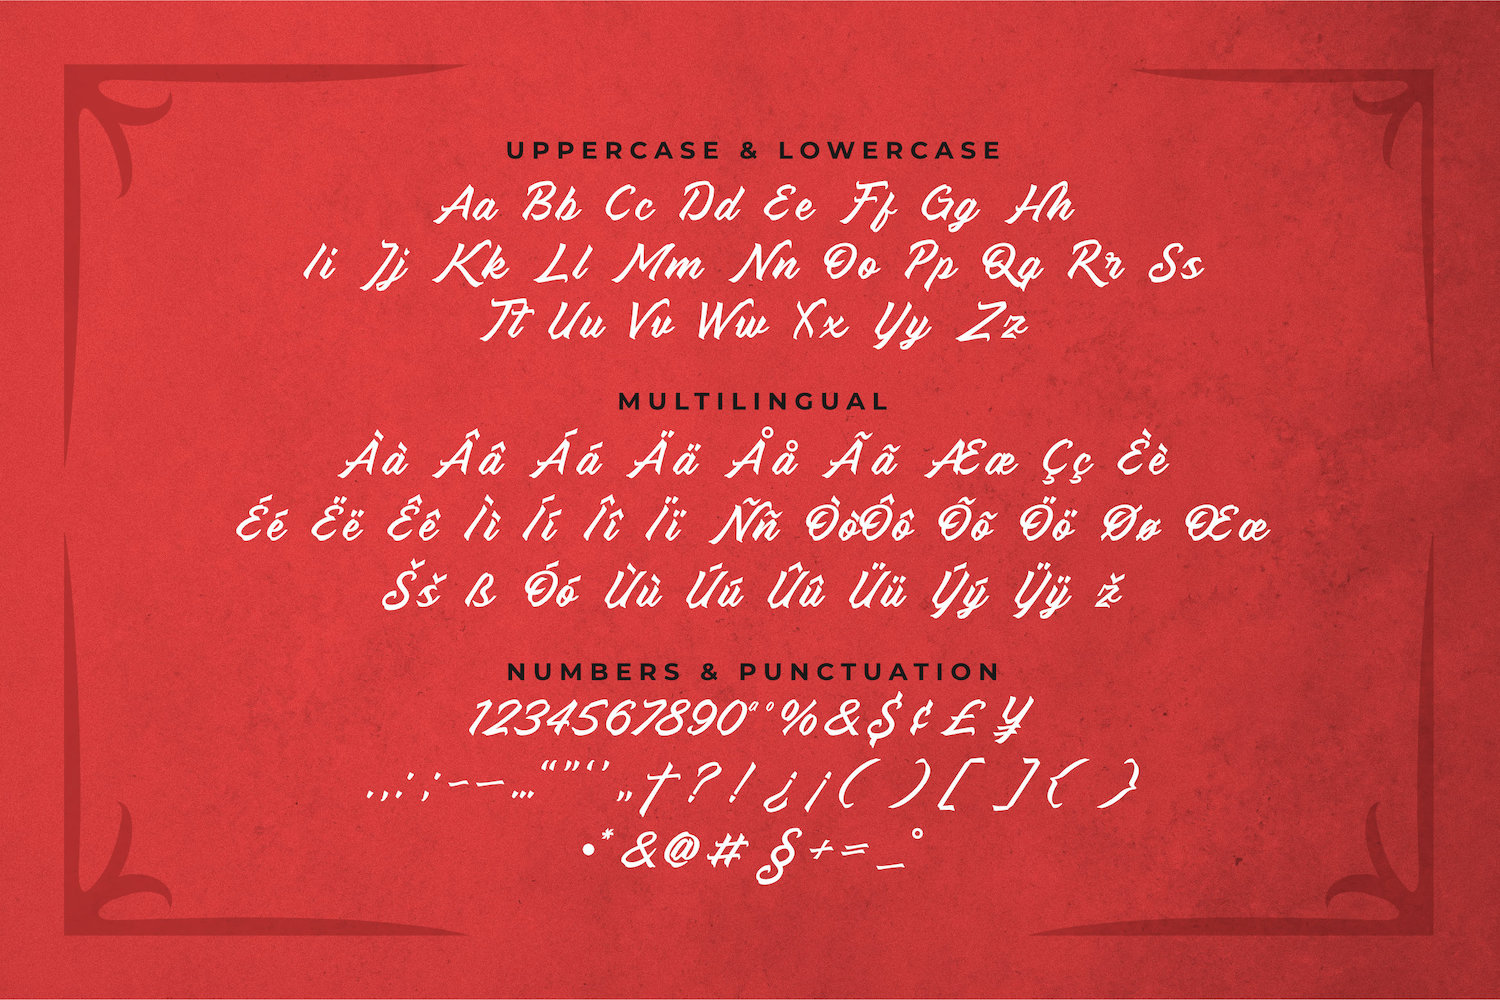 UPPERCASE & LOWERCASE
Aa Bb Cc Dd Ee Ff Gg Hh
Ii Jj Kk Ll Mm Nn Oo Pp Qq Rr Ss
Tt Uu Vv Ww Xx Yy Zz
MULTILINGUAL
Àà Ââ Áá Ää Åå Ãã Ææ Çç Èè
Éé Ëë Êê Ìì Íí Îî Ïï Ññ ÒòÔô Õõ Öö Øø Œœ
Šš ß Óó Ùù Úú Ûû Üü Ýý Ÿÿ ž
NUMBERS & PUNCTUATION
1234567890ªº%&$¢£¥
.,:;-–—…“”‘’„†?!¿¡()[]{}
•*&@#§+=_°